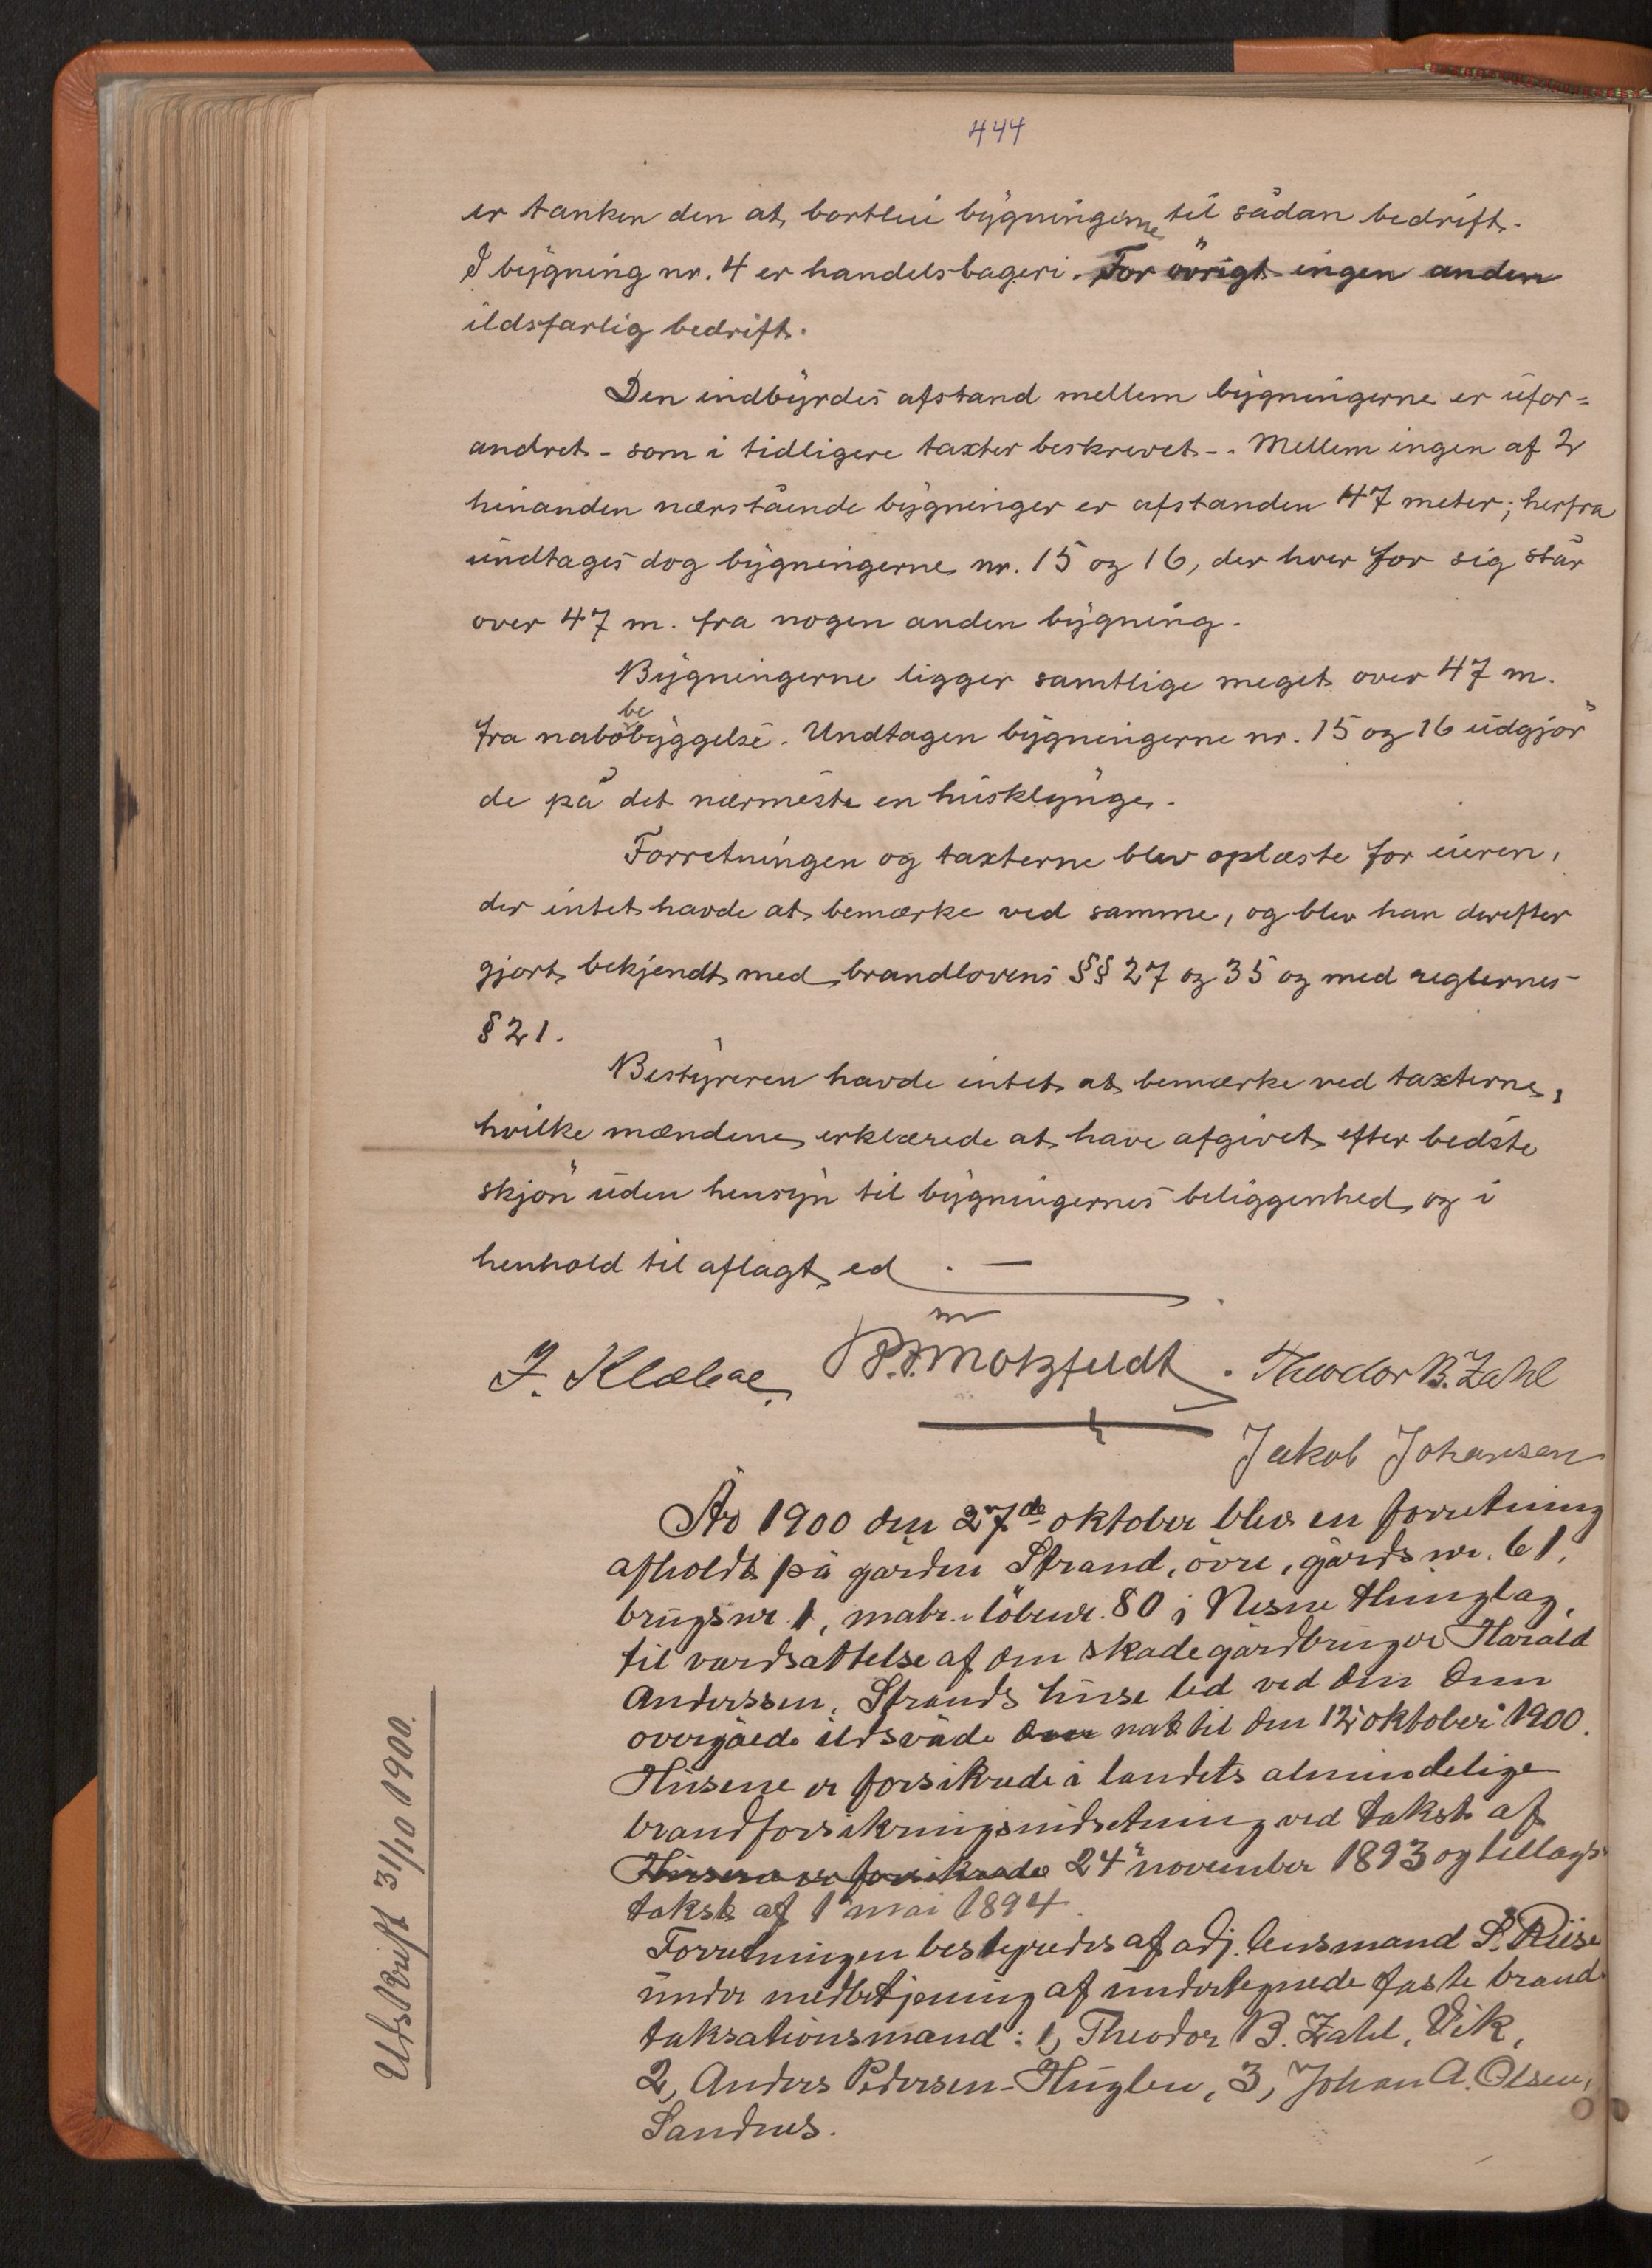 444
er tanken den at bortleie bygningerne til sådan bedrift.
I bygning nr. 4 er handelsbageri. For övrigt ingen anden
ildsfarlig bedrift.
Den indbyrdes afstand mellem bygningerne er ufor=
andret - som i tidligere taxter beskrevet -. Mellem ingen af 2
hinanden nærstående bygninger er afstanden 47 meter; herfra
undtages dog bygningerne nr. 15 og 16, der hver for sig står
over 47 m. fra nogen anden bygning.
Bygningerne ligger samtlige meget over 47 m.
fra nabobebyggelse. Undtagen bygningerne nr. 15 og 16 udgjör
de på det nærmeste en husklynge.
Forretningen og taxterne blev oplæste for eieren,
der intet havde at bemærke ved samme, og blev han derefter
gjort bekjendt med brandlovens §§ 27 og 35 og med reglernes
§ 21.
Bestyreren havde intet at bemærke ved taxterne,
hvilke mændene erklærede at have afgivet efter bedste
skjön uden hensyn til bygningernes beliggenhed og i
henhold til aflagt ed. —
J. Klæboe. P. Motzfeldt. Theodor B. Zahl
Jakob Johansen
År 1900 den 27de oktober blev en forretning
afholdt på gården Strand, övre, gårds nr. 61,
brugsnr. 1, matr. löbenr. 80 i Nesne thinglag,
til værdsættelse af den skade gårdbruger Harald
Anderssen, Strands huse led ved den dem
overgåede ildsvåde den nat til den 12 oktober 1900.
Husene er forsikrede i landets almindelige
brandforsikringsindretning ved takst af
Husene er forsikrede 24 november 1893 og tillægs
takst af 1 mai 1894.
Forretningen bestyredes af adj. lensmand S. Riise
under medbetjening af undertegnede faste brand
taksationsmænd: 1, Theodor B. Zahl, Vik,
2, Anders Pedersen - Huglen, 3, Johan A. Olsen,
Sandnes.
Utskrift 31/10 1900.